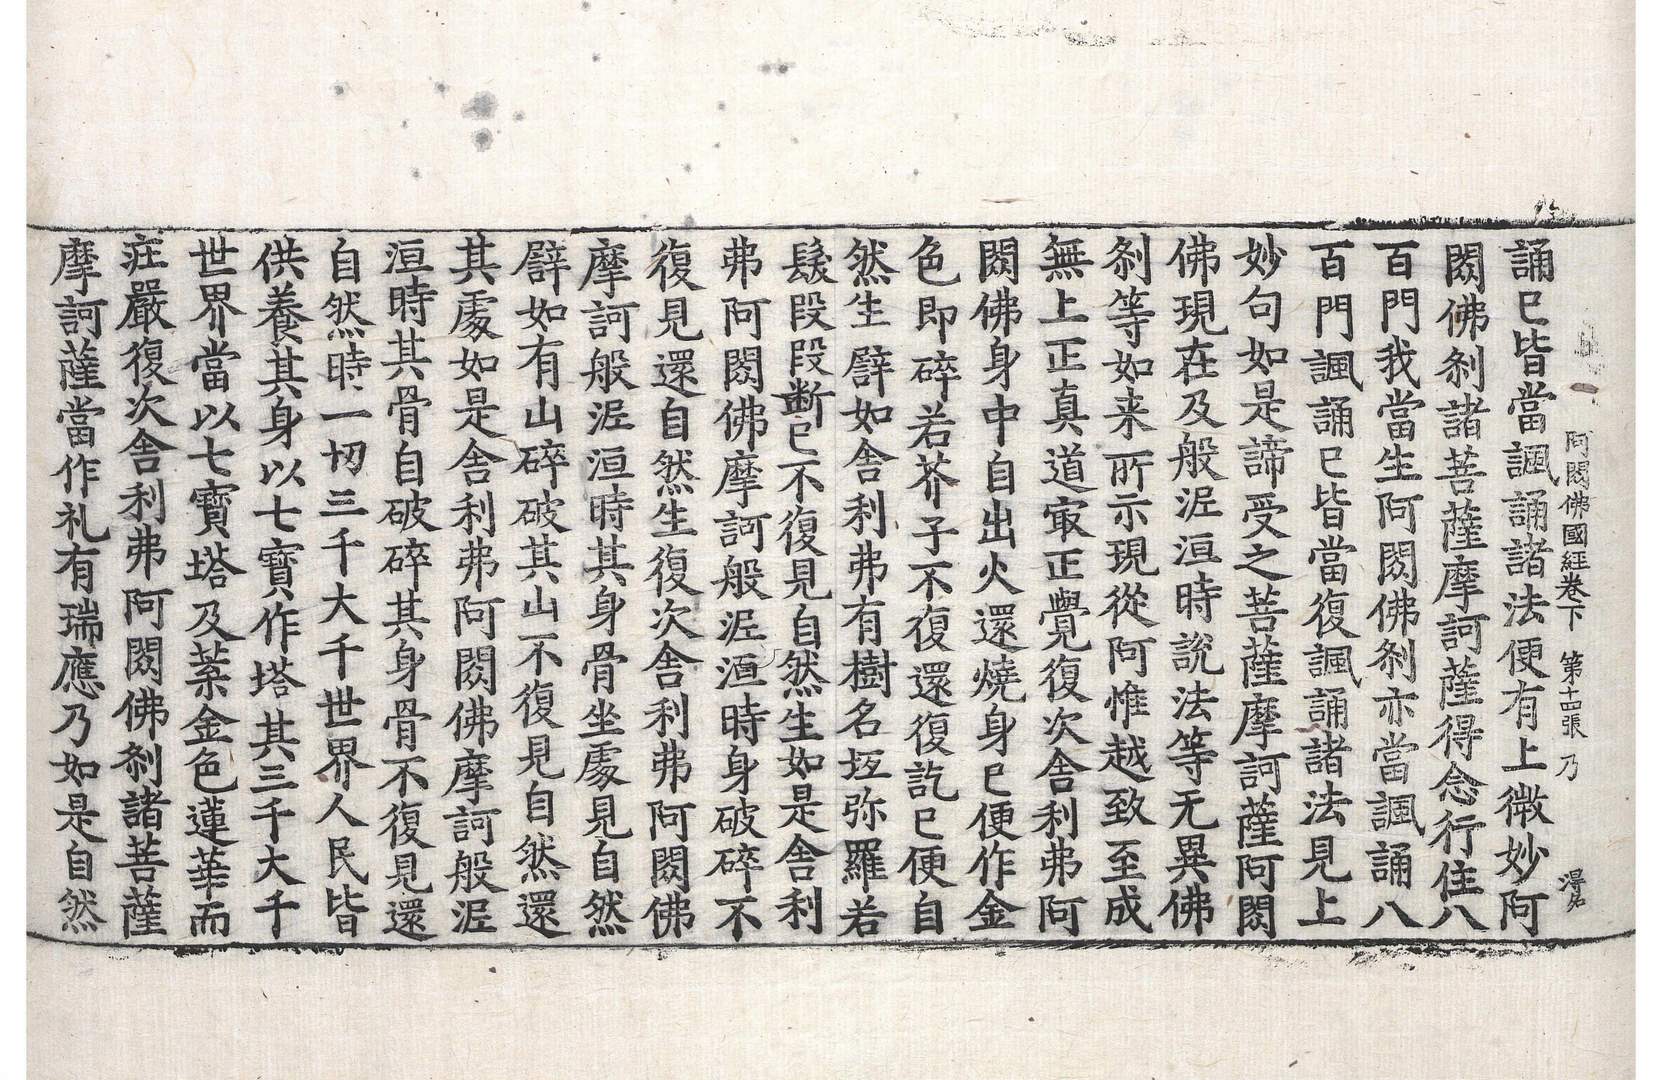 阿閦佛國經卷下 第十四張 乃 得名
誦已皆當諷誦諸法便有上微妙阿
閦佛剎諸菩薩摩訶薩得念行住八
百門我當生阿閦佛剎亦當諷誦八
百門諷誦已皆當復諷誦諸法見上
妙句如是諦受之菩薩摩訶薩阿閦
佛現在及般泥洹時說法等无異佛
剎等如来所示現從阿惟越致至成
無上正真道㝡正覺復次舍利弗阿
閦佛身中自出火還燒身已便作金
色即碎若芥子不復還復訖已便自
然生譬如舍利弗有樹名坻弥羅若
鬘段段断已不復見自然生如是舍利
弗阿閦佛摩訶般泥洹時身破碎不
復見還自然生復次舍利弗阿閦佛
摩訶般泥洹時其身骨坐處見自然
譬如有山碎破其山不復見自然還
其處如是舍利弗阿閦佛摩訶般泥
洹時其骨自破碎其身骨不復見還
自然時一切三千大千世界人民皆
供養其身以七寶作塔其三千大千
世界當以七寶塔及葉金色蓮華而
莊嚴復次舍利弗阿閦佛剎諸菩薩
摩訶薩當作礼有瑞應乃如是自然